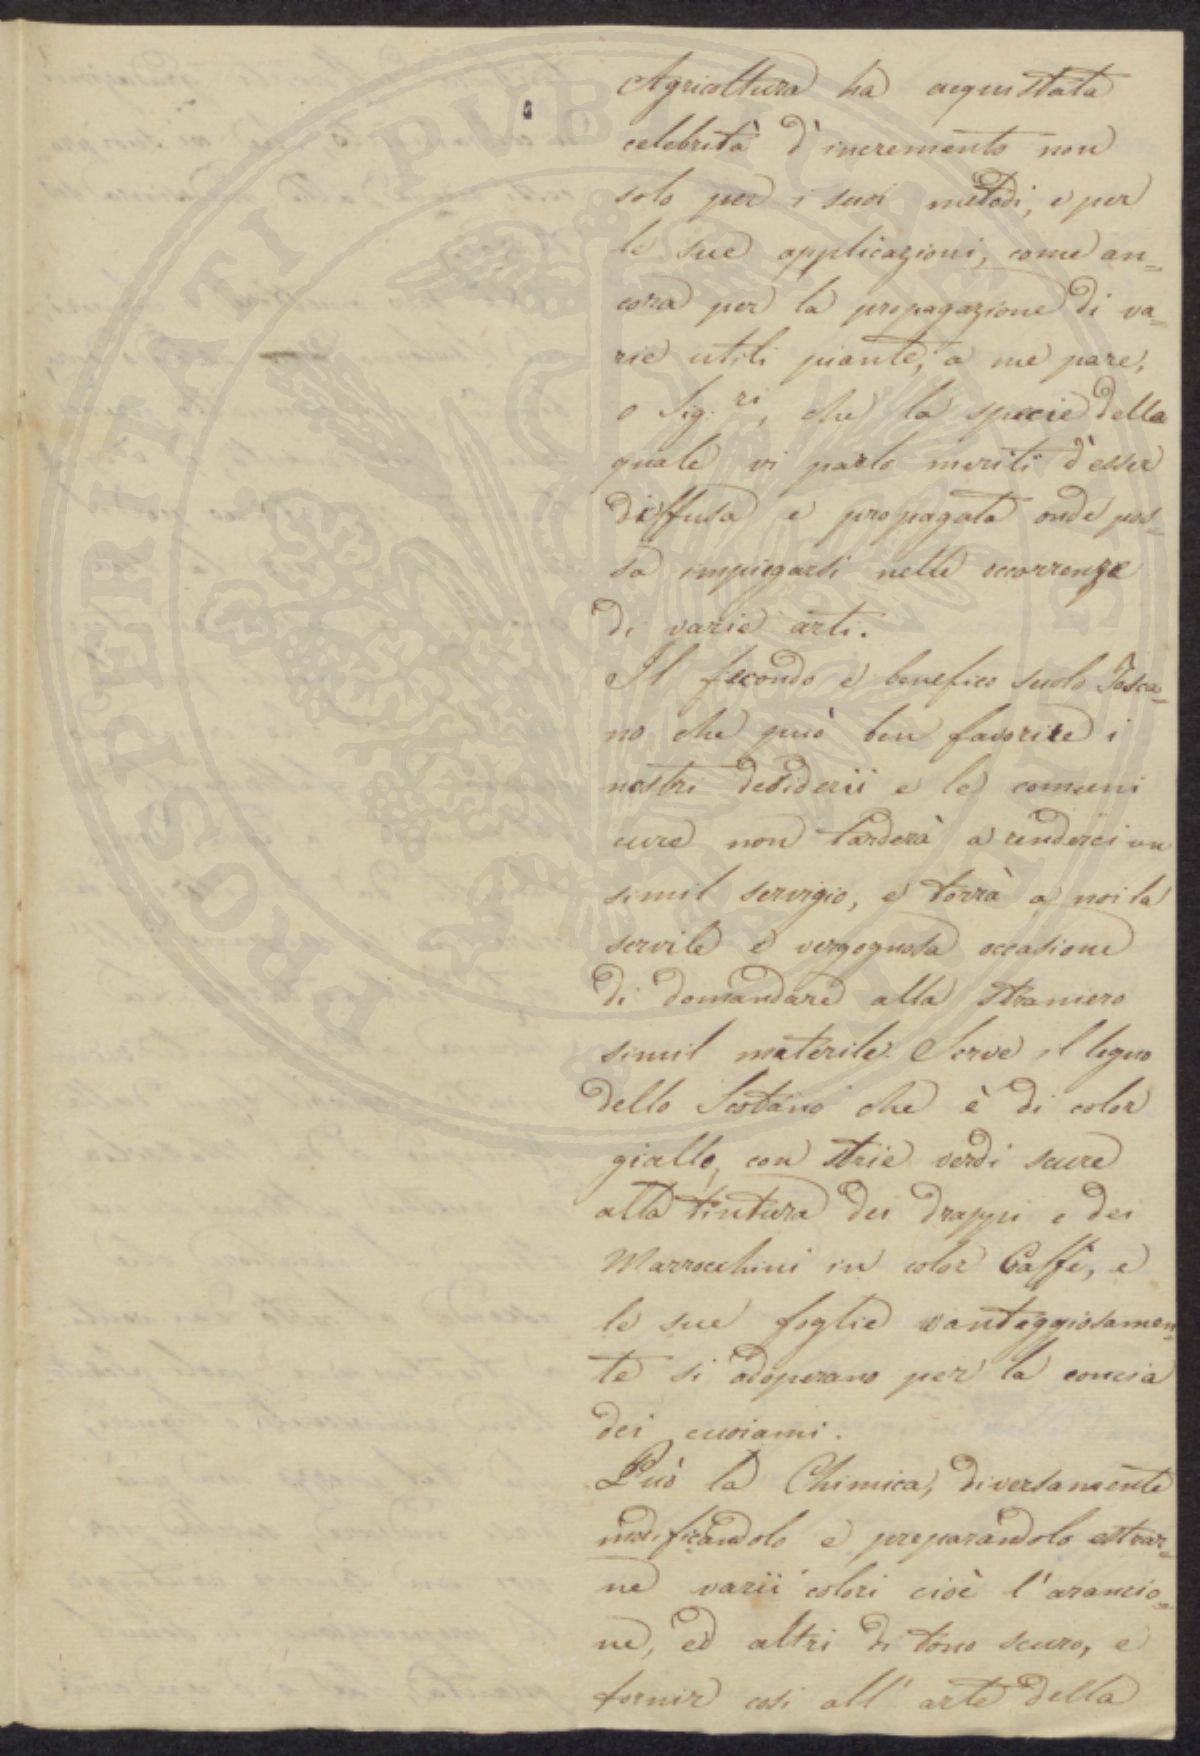 Agricoltura ha acquistata
celebrità d'incremento non
solo per i suoi metodi, e per
le sue applicazioni, come an=
cora per la propagazione di va=
rie utili piante, a me pare,
o Sig.ri, che la specie della
quale vi parlo meriti d'esser
diffusa e propagata onde pos=
sa impiegarsi nelle occorrenze
di varie arti.
Il fecondo e benefico suolo Tosca=
no che può ben favorire i
nostri desiderii e le comuni
cure non tarderà a renderci un
simil servigio, e torrà a noi la
servile e vergognosa occasione
di domandare alla straniero
simil materile. Serve il legno
dello Scotano che è di color
giallo, con strie verdi scure
alla tintura dei drappi e dei
Marrocchini in color Caffè, e
le sue foglie vantaggiosamen=
te si adoperano per la concia
dei cuoiami.
Può la Chimica, diversamente
modificandolo e preparandolo estrar=
ne varii colori cioè l'arancio=
ne, ed altri di tono scuro, e
fornir così all'arte della
PROSPERITATI PUBLICAE AUGENDAE